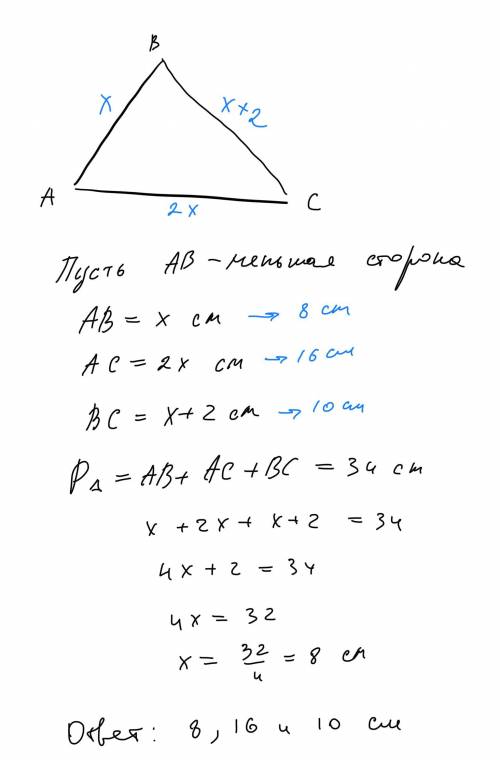 B
x
x+2
A
2x
C
Пусть AB – меньшая сторона
AB = x см → 8 см
AC = 2x см → 16 см
BC = x+2 см → 10 см
P△ = AB + AC + BC = 34 см
x + 2x + x+2 = 34
4x + 2 = 34
4x = 32
x = 32/4 = 8 см
Ответ: 8, 16 и 10 см